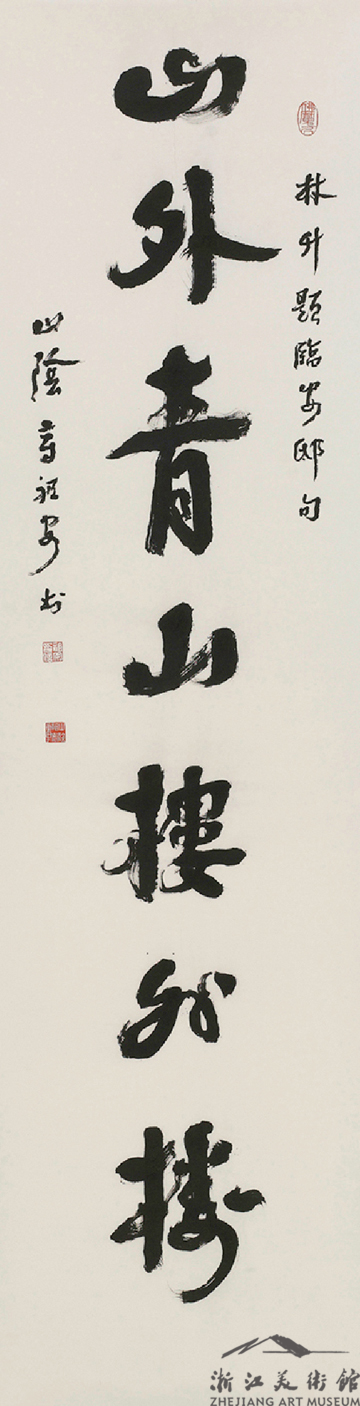 林升題臨安邸句
山外青山樓外樓
山陰
書
浙江美術館
ZHEJIANG ART MUSEUM